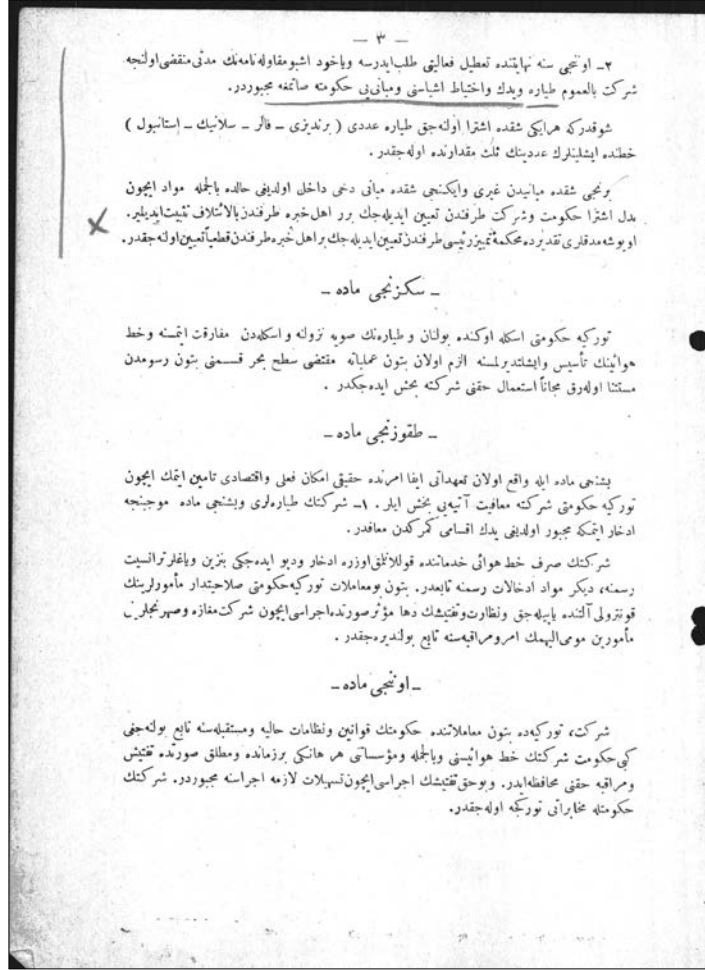 — ٣ —
٢ـ اوننجی سنه نهایتنده تعطیل فعالیتی طلب ایدرسه ویاخود اشبو مقاوله‌نامه‌نك مدتی منقضی اولنجه
شرکت بالعموم طیاره ویدك واختیاط اشیاسنی ومبانی‌یی حکومته صاتمغه مجبوردر.
شوقدرکه هرایکی شقده اشترا اوله‌جق طیاره عددی ( برندیزی ـ فالر ـ سلانیك ـ إستانبول )
خطنده ایشلینلرك عددینك ثلث مقدارنده اوله‌جقدر .
برنجی شقده مبانیدن غیری وایکنجی شقده مبانی دخی داخل اولدیغی حالده بالجمله مواد ایچون
بدل اشترا حکومت وشرکت طرفندن تعیین ایدیله‌جك برر اهل خبره طرفندن بالائتلاف تثبیت ایدیلیر.
اویوشه‌مدقلری تقدیرده محکمهٔ تمییز رئیسی طرفندن تعیین ایدیله‌جك بر اهل خبره طرفندن قطعیاً تعیین اوله‌جقدر.
ـ سکزنجی ماده ـ
تورکیه حکومتی اسکله اوکنده بولنان و طیاره‌نك صویه نزولنه و اسکله‌دن مفارقت ایتمسنه وخط
هوائینك تأسیس وایشلتدیرلمسنه الزم اولان بتون عملیاته مقتضی سطح بحر قسمنی بتون رسومدن
مستثنا اوله‌رق مجاناً استعمال حقنی شرکته بخش ایده‌جکدر .
ـ طقوزنجی ماده ـ
بشنجی ماده ایله واقع اولان تعهداتی ایفا امرنده حقیقی امکان فعلی واقتصادی تامین ایتمك ایچون
تورکیه حکومتی شرکته معافیت آتیه‌یی بخش ایلر . ١ـ شرکتك طیاره‌لری وبشنجی ماده موجبنجه
ادخار ایتمکه مجبور اولدیغی یدك اقسامی کمرکدن معافدر.
شرکتك صرف خط هوائی خدماتنده قوللانلمق اوزره ادخار ودپو ایده‌جکی بنزین ویاغلر ترانسیت
رسمنه، دیکر مواد ادخالات رسمنه تابعدر. بتون بو معاملات تورکیه حکومتی صلاحیتدار مأمورلرینك
قونترولی آلتنده یاپیله‌جق ونظارت وتفتیشك دها مؤثر صورتده اجراسی ایچون شرکت مغازه وصهرنجلرین
مأمورین مومی‌الیهمك امر ومراقبه‌سنه تابع بولندیره‌جقدر .
ـ اوننجی ماده ـ
شرکت، تورکیه‌ده بتون معاملاتنده حکومتك قوانین ونظامات حالیه ومستقبله‌سنه تابع بوله‌جغی
کبی حکومت شرکتك خط هوائیسنی وبالجمله ومؤسساتی هر هانکی برزمانده ومطلق صورتده تفتیش
ومراقبه حقنی محافظه ایدر. وبوحق تفتیشك اجراسی ایچون تسهیلات لازمه اجراسنه مجبوردر. شرکتك
حکومتله مخابراتی تورکجه اوله‌جقدر.